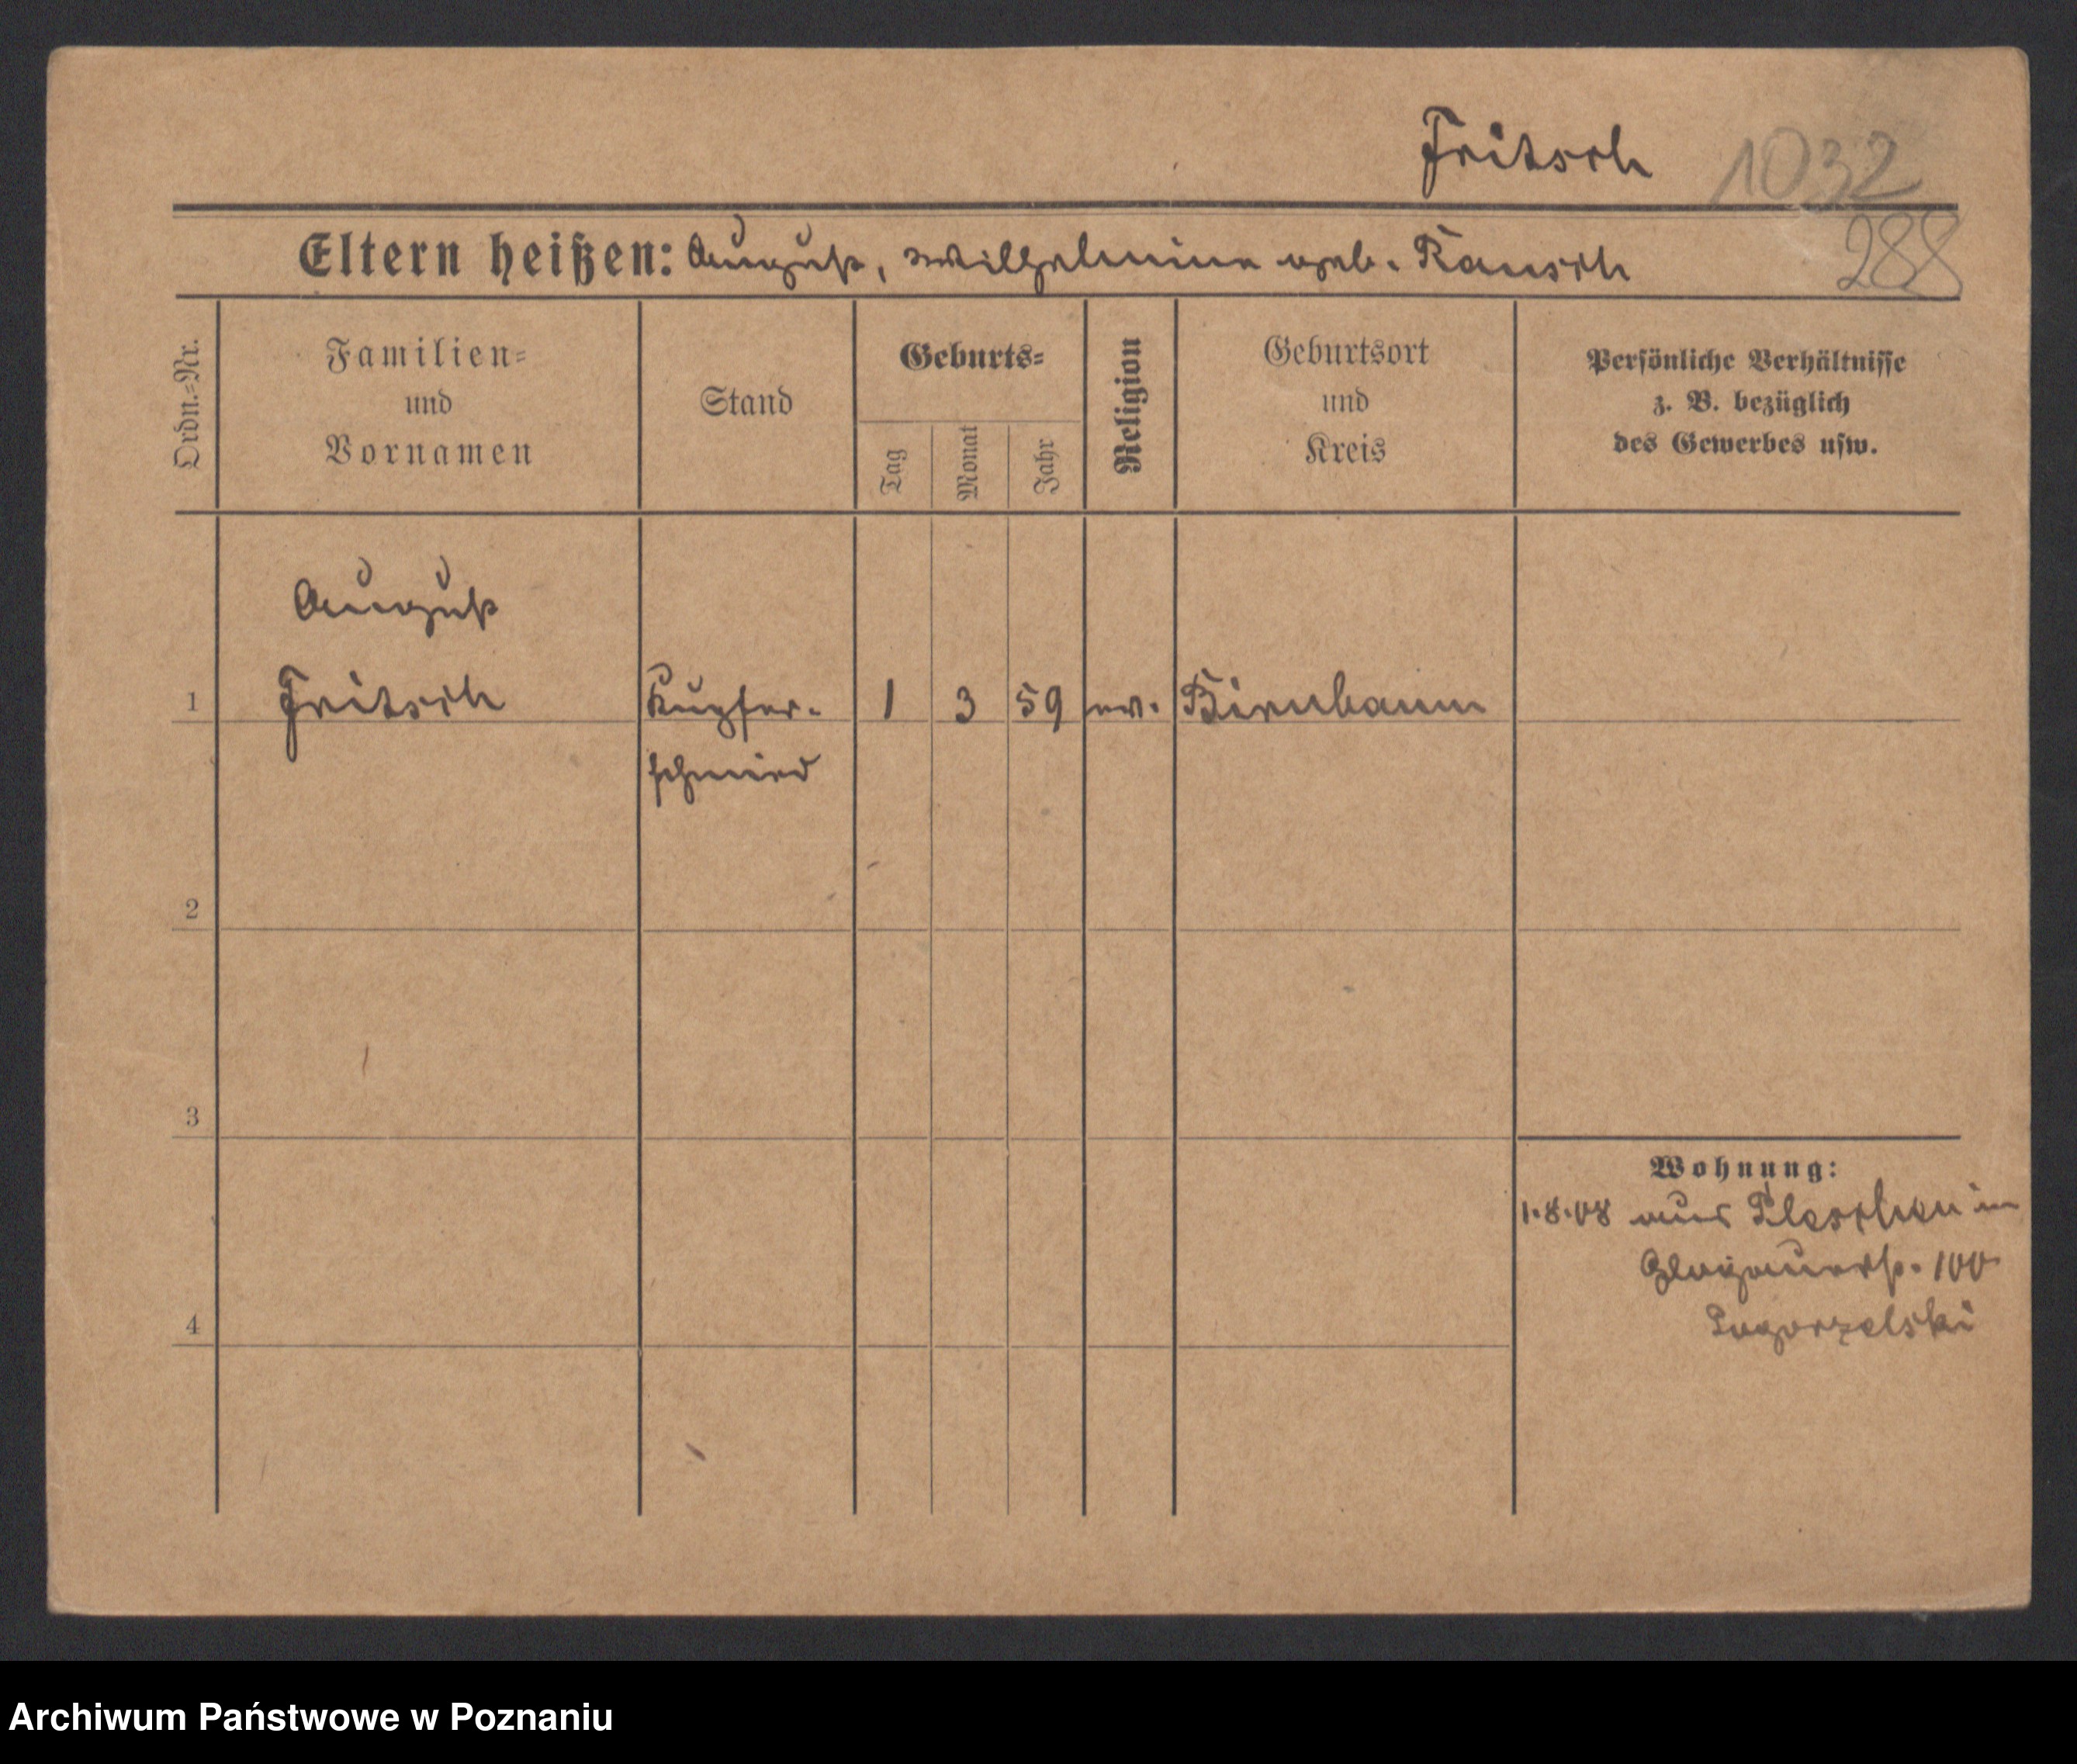 Fritsch 1032
Eltern heißen: August, Wilhelmine geb. Rausch 288
Ordn.=Nr.
Familien=
und
Vornamen
Stand
Geburts=
Tag
Monat
Jahr
Religion
Geburtsort
und
Kreis
Persönliche Verhältnisse
z. B. bezüglich
des Gewerbes usw.
August
1 Fritsch Kupfer- 1 3 59 ev. Birnbaum
schmied
2
3
Wohnung:
1.8.08 aus Pleschen in
Glogauerst. 100
4 Pogorzelski
Archiwum Państwowe w Poznaniu